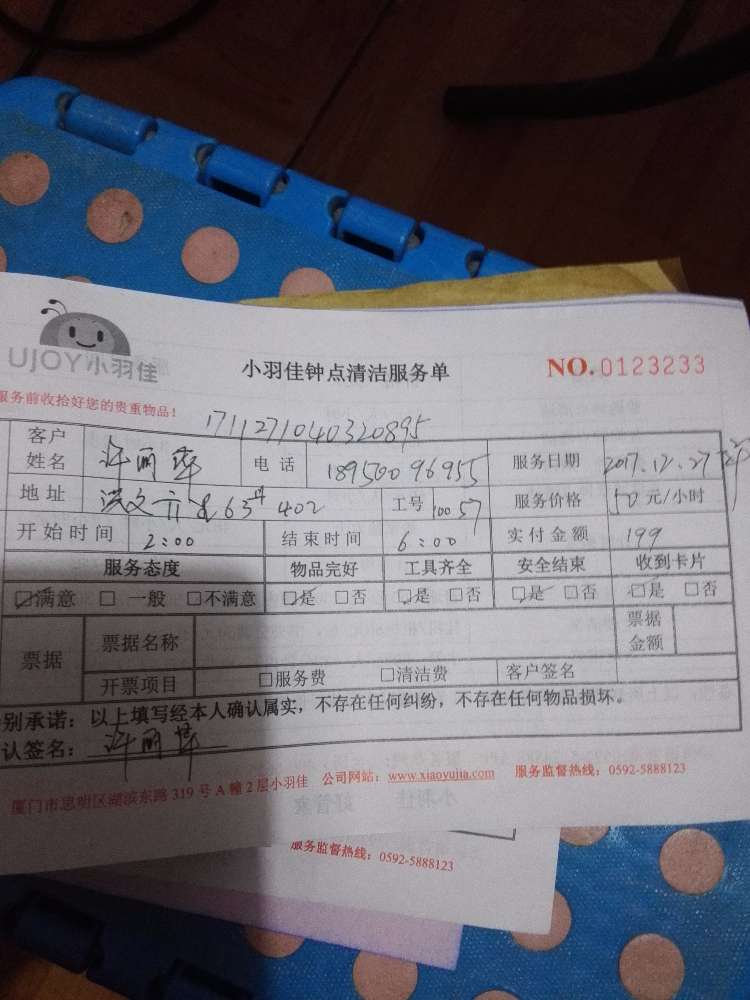 UJOY小羽佳
小羽佳钟点清洁服务单 NO.0123233
服务前收拾好您的贵重物品!
1711271040320895
客户姓名 许丽萍 电话 18950096955 服务日期 2017.12.27
地址 洪文六里63# 402 工号 10057 服务价格 50元/小时
开始时间 2:00 结束时间 6:00 实付金额 199
服务态度 物品完好 工具齐全 安全结束 收到卡片
☑满意 □一般 □不满意 ☑是 □否 ☑是 □否 ☑是 □否 ☑是 □否
票据 票据名称 票据金额
开票项目 □服务费 □清洁费 客户签名
别承诺:以上填写经本人确认属实,不存在任何纠纷,不存在任何物品损坏。
认签名:许丽萍
厦门市思明区湖滨东路319号A幢2层小羽佳 公司网站:www.xiaoyujia.com 服务监督热线:0592-5888123
服务监督热线:0592-5888123